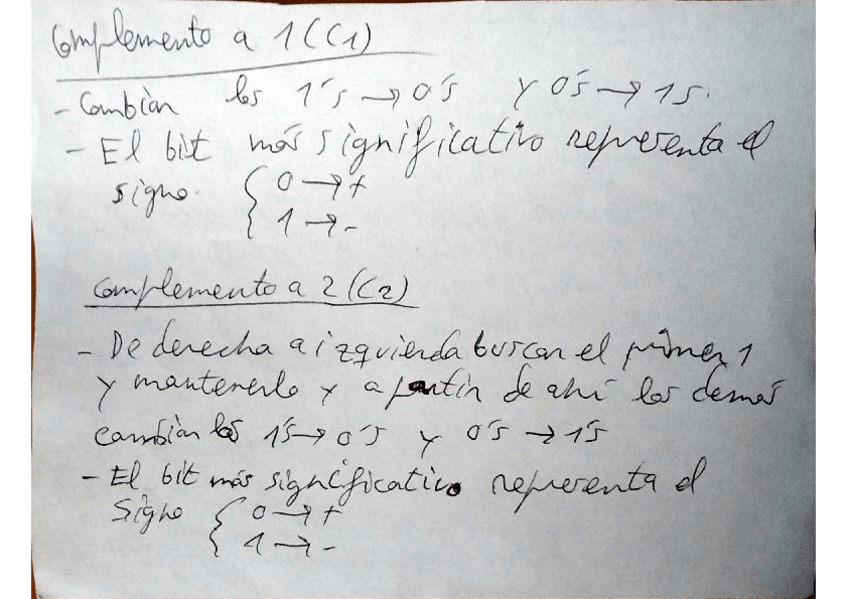 Complemento a 1 (C1)
- Cambiar los 1's → 0's y 0's → 1s.
- El bit más significativo representa el
signo. { 0 → +
1 → -
Complemento a 2 (C2)
- De derecha a izquierda buscar el primer 1
y mantenerlo y a partir de ahí los demás
cambiar los 1's → 0's y 0's → 1's
- El bit más significativo representa el
Signo { 0 → +
1 → -